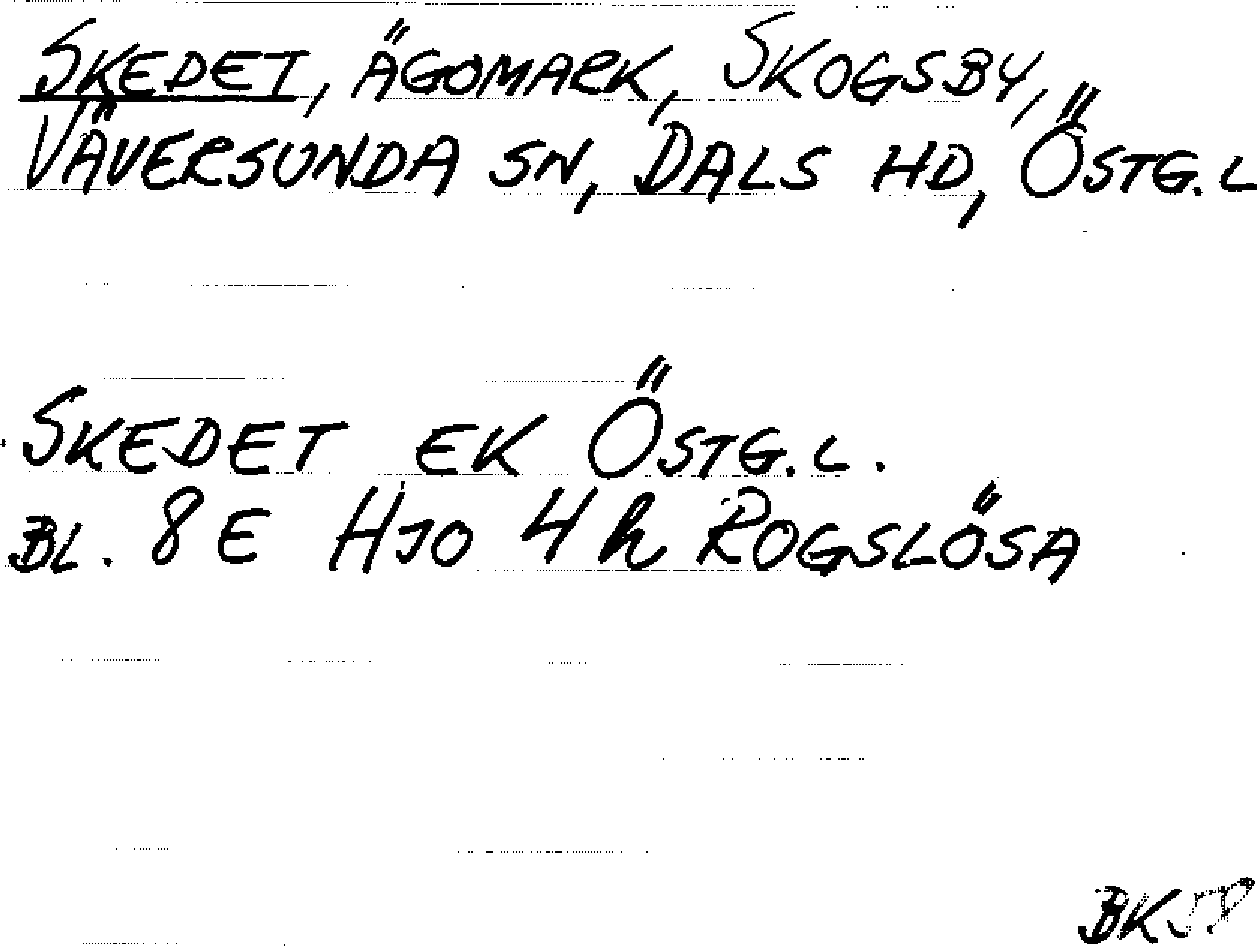 SKEDET, ÄGOMARK, SKOGSBY,
VÄVERSUNDA SN, DALS HD, ÖSTG.L
SKEDET EK ÖSTG.L.
BL. 8 E HJO 4 h ROGSLÖSA